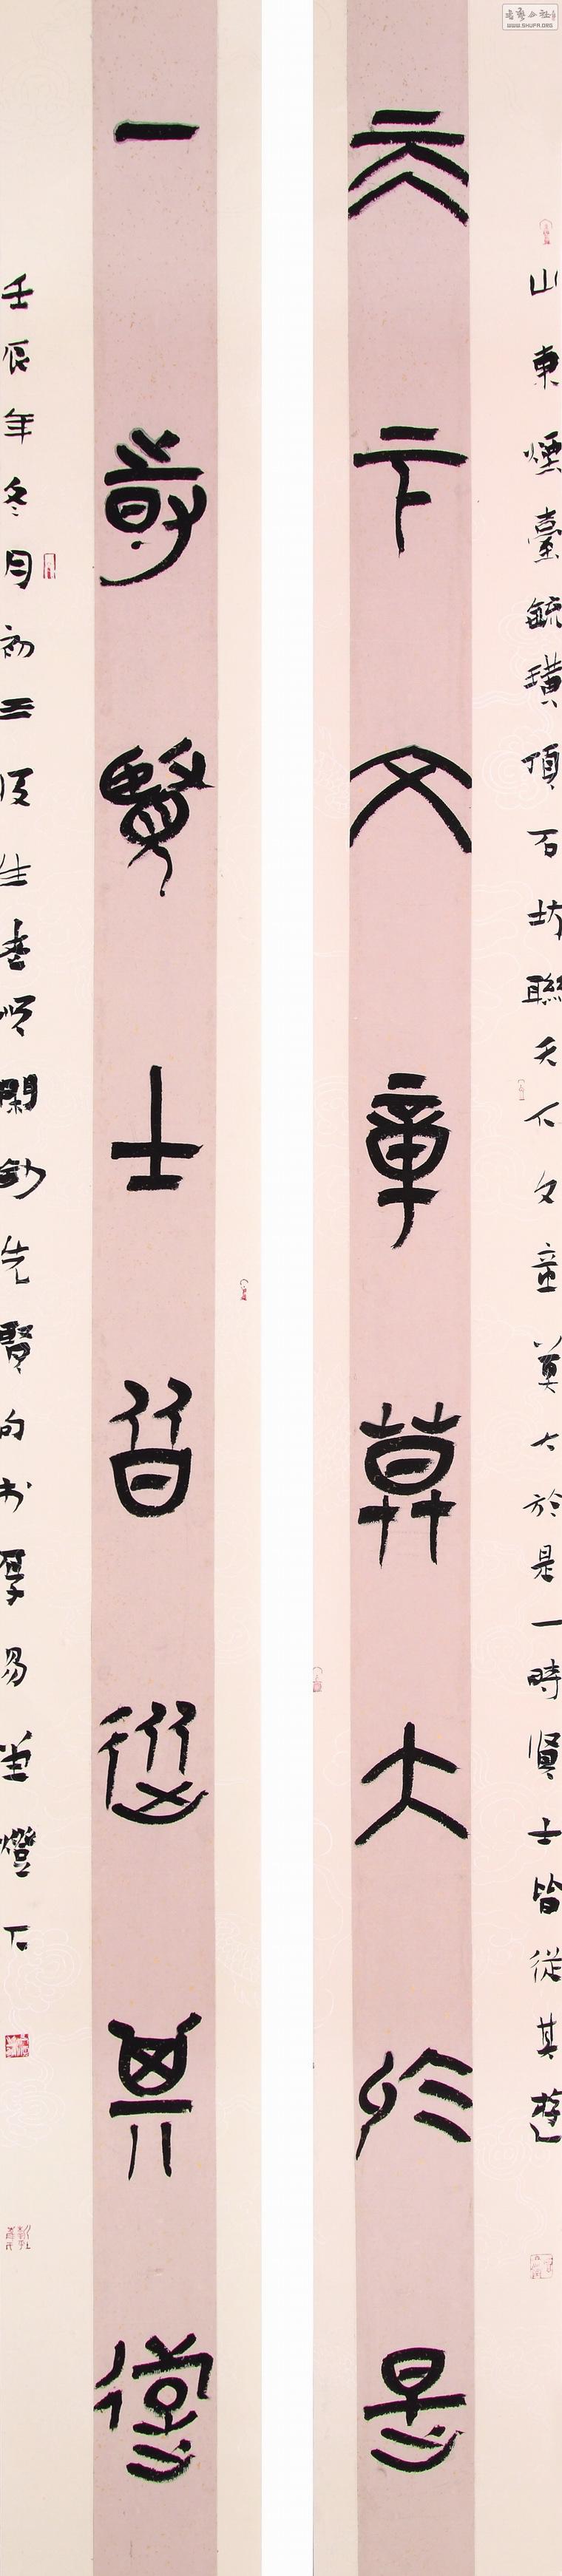 山東煙臺毓璜頂石坊聯天下文章莫大於是一時賢士皆從其遊
天下文章莫大於是
一時賢士皆從其遊
壬辰年冬月初三後生順閑鈔先賢句於厚易堂燈下
WWW.SHUFA.ORG